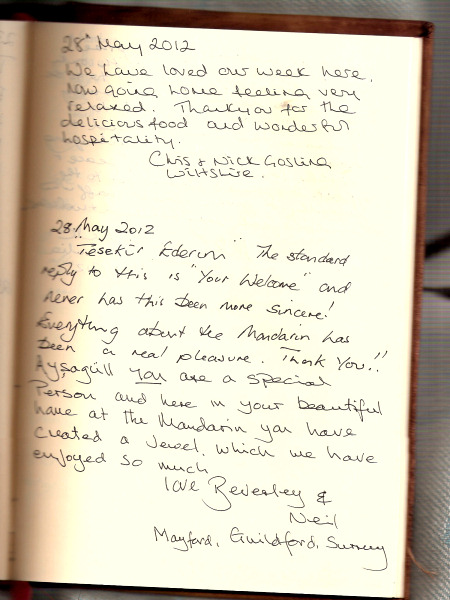 28th May 2012
We have loved our week here,
now going home feeling very
relaxed. Thankyou for the
delicious food and wonderful
hospitality.
Chris & Nick Gosling
Wiltshire.
28 May 2012
"Tesekür Ederum" The standard
reply to this is "Your Welcome" and
never has this been more sincere!
Everything about the Mandarin has
been a real pleasure. Thank You!!
Ayşagúll you are a special
Person and here in your beautiful
home at the Mandarin you have
created a Jewel, which we have
enjoyed so much
love Beverley &
Neil
Mayford, Guildford, Surrey